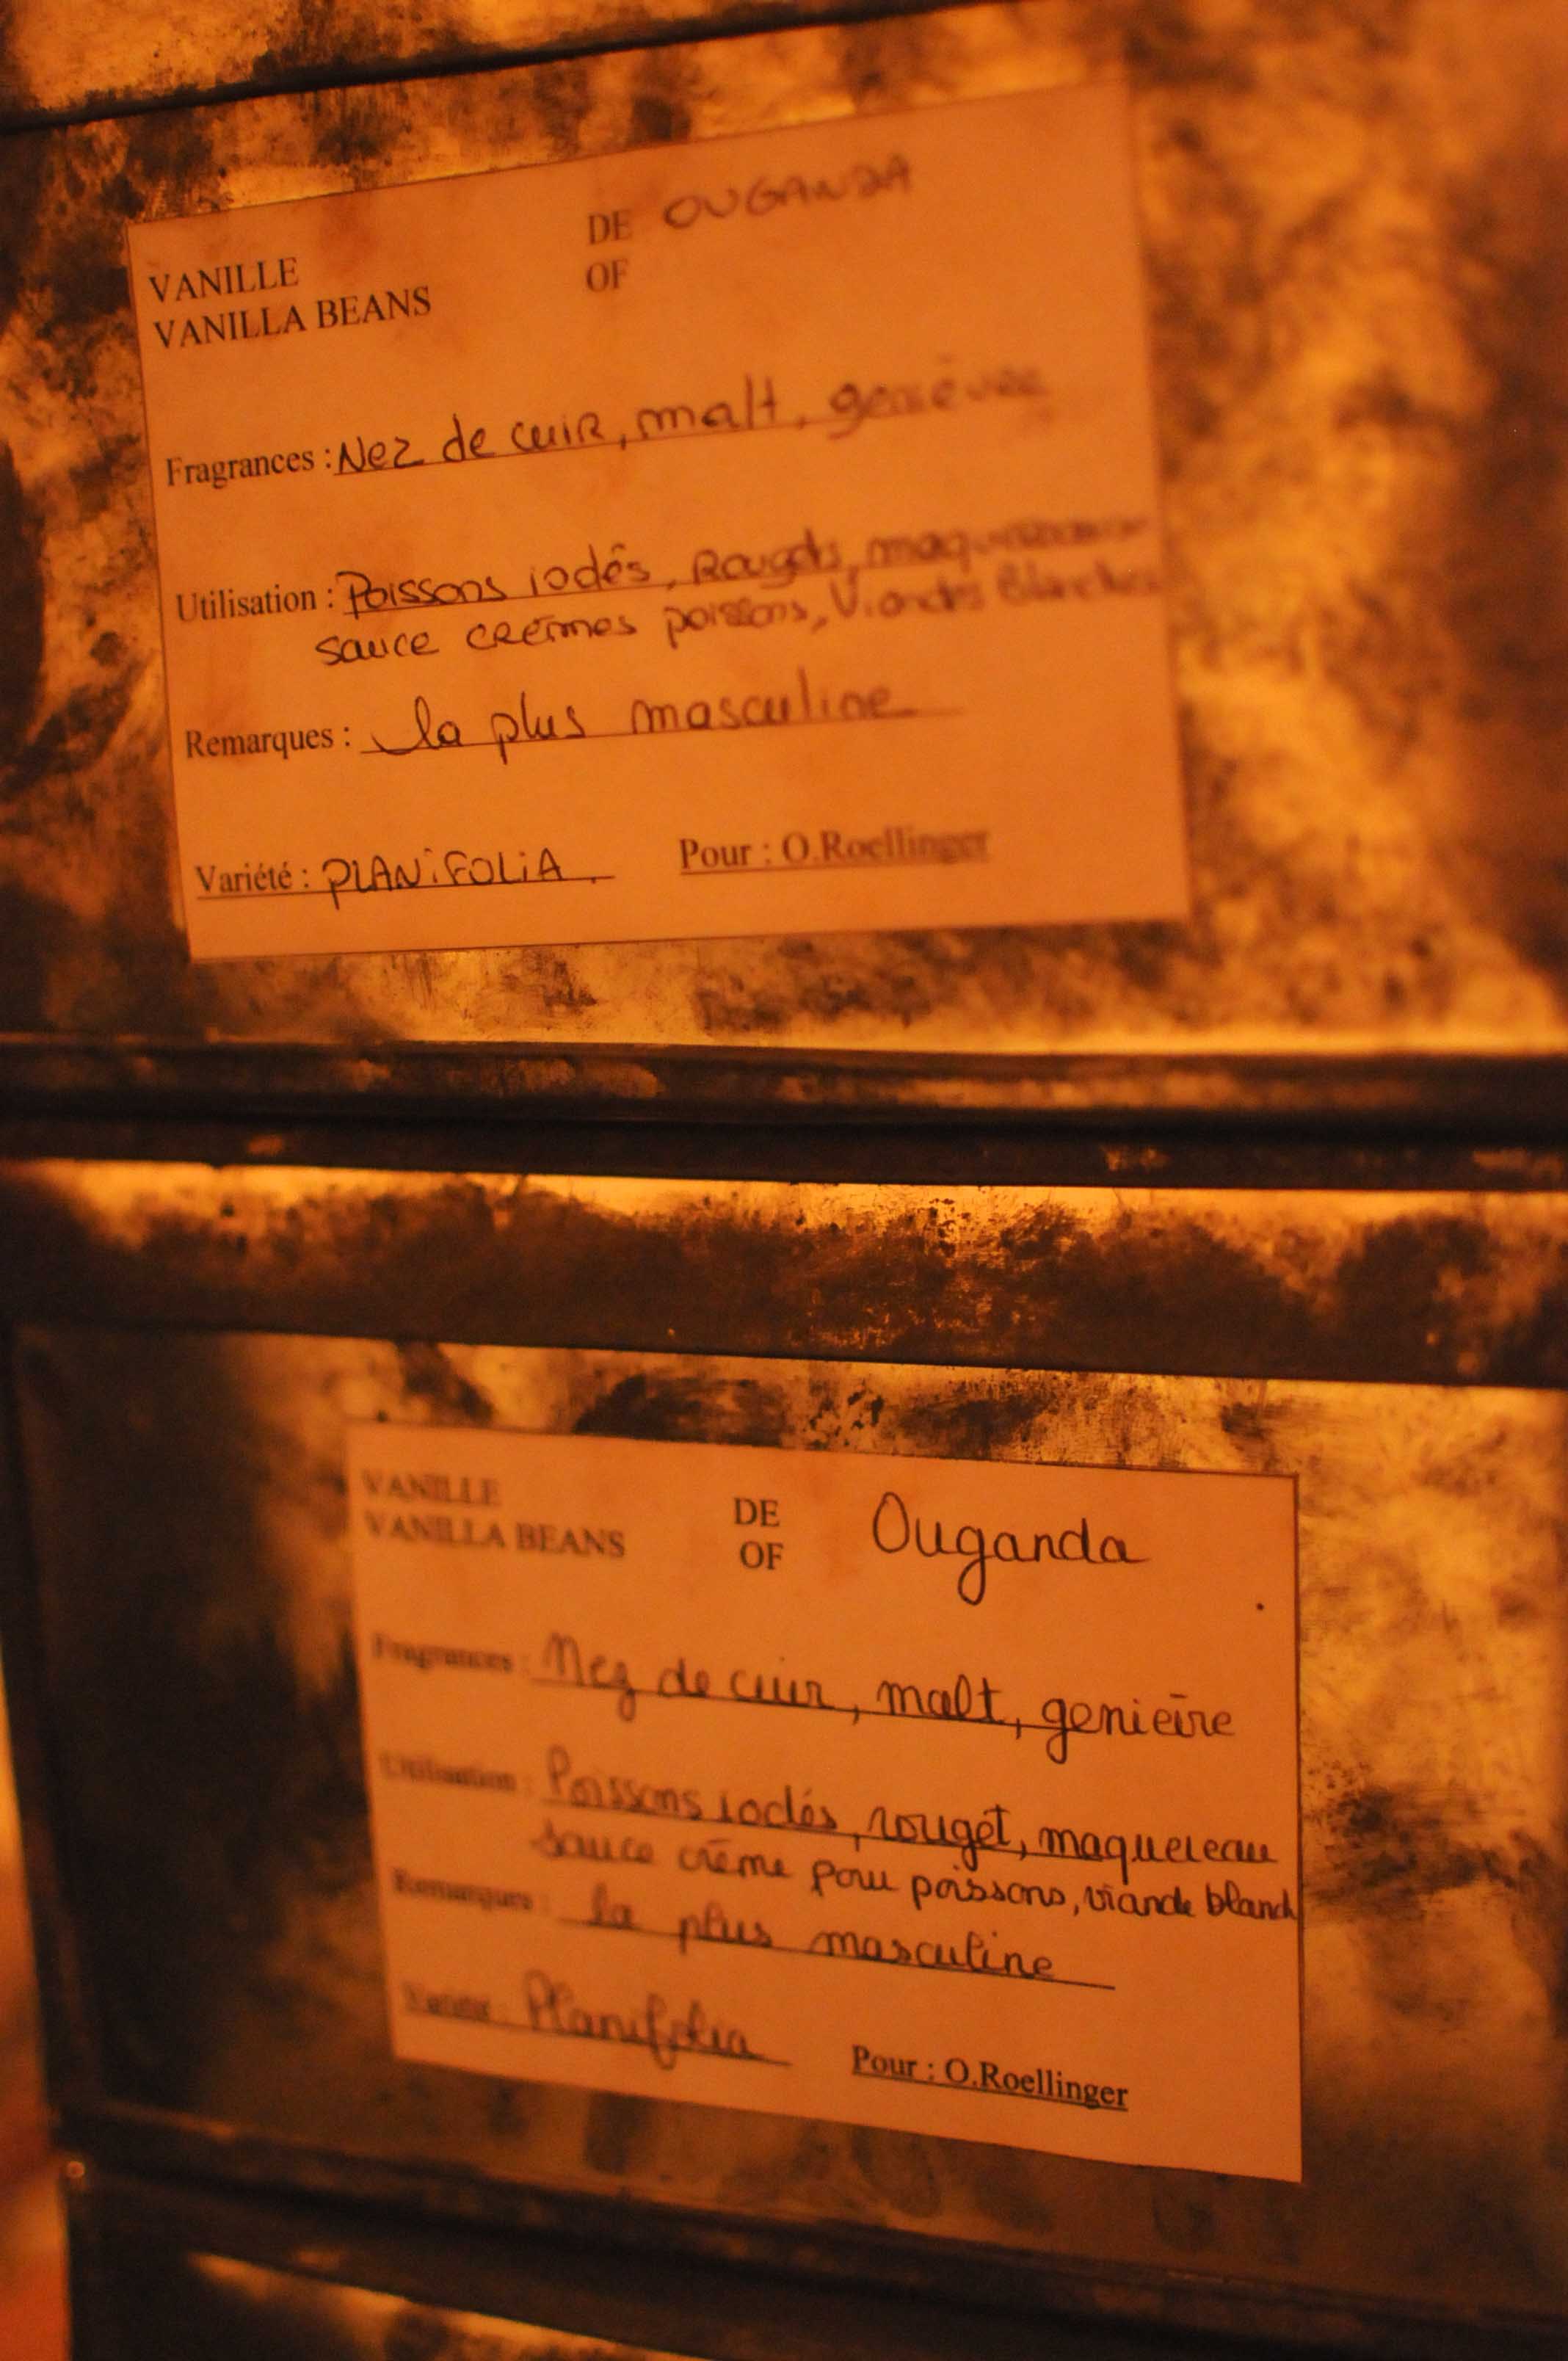 VANILLE DE OUGANDA
VANILLA BEANS OF
Fragrances : Nez de cuir, malt, genièvre
Utilisation : Poissons iodés, Rougets, maquereaux
sauce crèmes poissons, Viandes Blanches
Remarques : la plus masculine
Variété : PLANIFOLIA. Pour : O.Roellinger
VANILLE DE Ouganda
VANILLA BEANS OF
Fragrances : Nez de cuir, malt, genièvre
Utilisation : Poissons iodés, rouget, maquereau
sauce crème pour poissons, viande blanch
Remarques : la plus masculine
Variété : Planifolia Pour : O.Roellinger